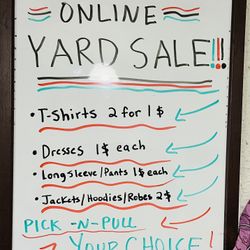 ONLINE
YARD SALE!!!
• T-Shirts 2 for 1$
• Dresses 1$ each
• Longsleeve/Pants 1$ each
• Jackets/Hoodies/Robes 2$
PICK-N-PULL
YOUR CHOICE!